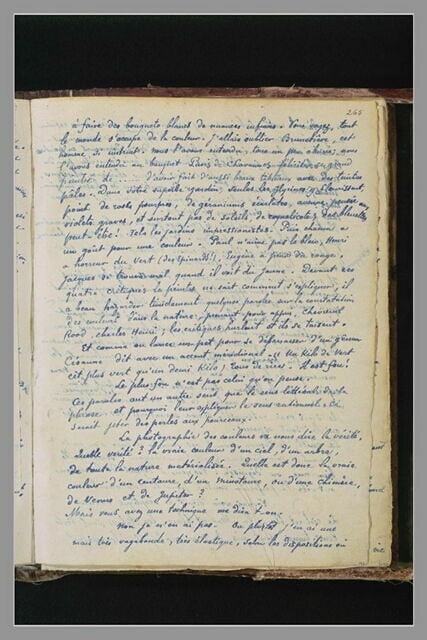 265
à faire des bouquets blancs de nuances infinies. Vous voyez, tout
le monde s'occupe de la couleur. J'allais oublier Brunetière, cet
homme de institut. nous l'avons entendu, tous un peu ahuris, nous
l'avons entendu au banquet Puvis de Chavannes féliciter ce grand
peintre de d'avoir fait d'aussi beaux tableaux avec des teintes
pâles. Dans votre
point de roses pourpres, de géraniums écarlates, aucunes pensées
violets graves, et surtout pas de soleils de coquelicots; des bluets
peut-être! Tels les jardins impressionistes. Puis chacun a
un goût pour une couleur. Paul n'aime pas le bleu, Henri
a horreur du Vert (des épinards!). Eugène a peur du rouge,
Jacques se trouve mal quand il voit du Jaune. Devant ces
quatre critiques le peintre ne sait comment s'expliquer, il
a beau hasarder timidement quelques paroles sur la constatation
des couleurs dans la nature, prenant pour appui, Chevreul
Rood, Charles Henri; les critiques hurlent et ils se taisent.
Et comme on lance un pet pour se débarrasser d'un gêneur
Cézanne dit avec un accent méridional. "Un Kilo de Vert
est plus vert qu'un demi Kilo". Tous de rires. Il est fou!
Le plus fou n'est pas celui qu'on pense.
Ces paroles ont un autre sens que le sens littéral de la
phrase et pourquoi leur expliquer le sens rationnel: ce
serait jeter des perles aux pourceaux.
La photographie des couleurs va nous dire la vérité;
Quelle vérité? la vraie couleur d'un ciel, d'un arbre,
de toute la nature matérialisée. Quelle est donc la vraie
couleur d'un centaure, d'un minotaure, ou d'une chimère,
de Venus et de Jupiter?
Mais vous avez une technique me dira t.on.
Non je n'en ai pas. Ou plutôt j'en ai une
mais très vagabonde, très élastique, selon les dispositions où